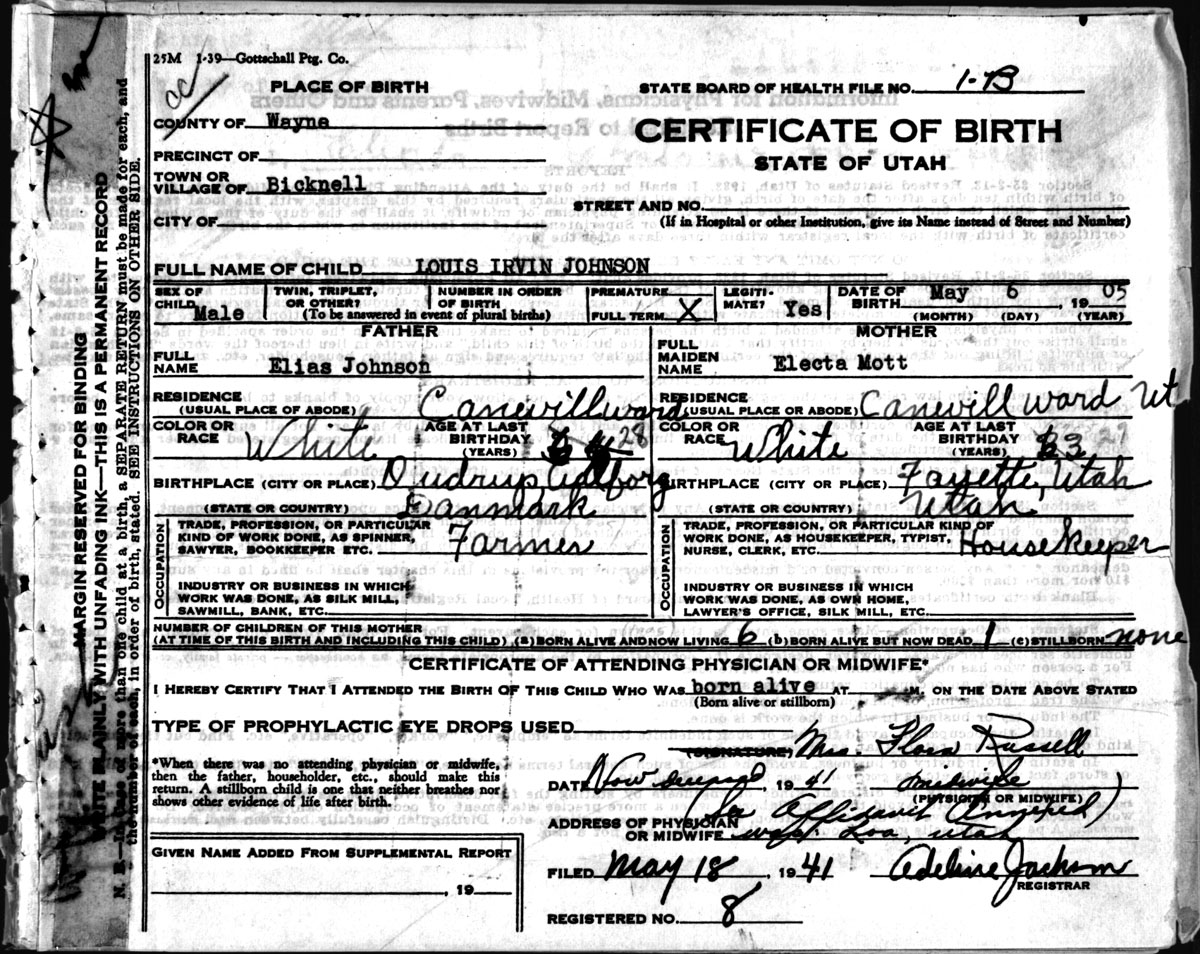 25M 1-39—Gottschall Ptg. Co.
PLACE OF BIRTH
STATE BOARD OF HEALTH FILE NO. 1-B
cc
COUNTY OF Wayne
CERTIFICATE OF BIRTH
PRECINCT OF
STATE OF UTAH
TOWN OR
VILLAGE OF Bicknell
STREET AND NO.
CITY OF
(If in Hospital or other Institution, give its Name instead of Street and Number)
FULL NAME OF CHILD LOUIS IRVIN JOHNSON
SEX OF CHILD Male
TWIN, TRIPLET, OR OTHER?
NUMBER IN ORDER OF BIRTH
(To be answered in event of plural births)
PREMATURE
FULL TERM X
LEGITI-
MATE? Yes
DATE OF BIRTH May 6, 1905
(MONTH) (DAY) (YEAR)
FATHER
FULL NAME Elias Johnson
RESIDENCE
(USUAL PLACE OF ABODE) Canevillward
COLOR OR RACE White
AGE AT LAST BIRTHDAY (YEARS) 28
BIRTHPLACE (CITY OR PLACE)
(STATE OR COUNTRY) Danmark
OCCUPATION
TRADE, PROFESSION, OR PARTICULAR
KIND OF WORK DONE, AS SPINNER,
SAWYER, BOOKKEEPER ETC. Farmer
INDUSTRY OR BUSINESS IN WHICH
WORK WAS DONE, AS SILK MILL,
SAWMILL, BANK, ETC.
MOTHER
FULL MAIDEN NAME Electa Mott
RESIDENCE
(USUAL PLACE OR ABODE) Canevill Ward Ut
COLOR OR RACE White
AGE AT LAST BIRTHDAY (YEARS) 33 29
BIRTHPLACE (CITY OR PLACE) Fayette, Utah
(STATE OR COUNTRY) Utah
OCCUPATION
TRADE, PROFESSION, OR PARTICULAR KIND OF
WORK DONE, AS HOUSEKEEPER, TYPIST,
NURSE, CLERK, ETC. Housekeeper
INDUSTRY OR BUSINESS IN WHICH
WORK WAS DONE, AS OWN HOME,
LAWYER'S OFFICE, SILK MILL, ETC.
NUMBER OF CHILDREN OF THIS MOTHER
(AT TIME OF THIS BIRTH AND INCLUDING THIS CHILD) (a) BORN ALIVE AND NOW LIVING 6 (b) BORN ALIVE BUT NOW DEAD 1 (c) STILLBORN none
CERTIFICATE OF ATTENDING PHYSICIAN OR MIDWIFE*
I HEREBY CERTIFY THAT I ATTENDED THE BIRTH OF THIS CHILD WHO WAS born alive AT M. ON THE DATE ABOVE STATED
(Born alive or stillborn)
TYPE OF PROPHYLACTIC EYE DROPS USED
(SIGNATURE) Mrs. Flora Russell
*When there was no attending physician or midwife,
then the father, householder, etc., should make this
return. A stillborn child is one that neither breathes nor
shows other evidence of life after birth.
DATE 1941 midwife
(PHYSICIAN OR MIDWIFE)
ADDRESS OF PHYSICIAN
OR MIDWIFE Affidavit Annexed)
Loa, Utah
GIVEN NAME ADDED FROM SUPPLEMENTAL REPORT
, 19
FILED May 18, 1941 Adeline Jackson
REGISTRAR
REGISTERED NO. 8
MARGIN RESERVED FOR BINDING
WRITE PLAINLY WITH UNFADING INK—THIS IS A PERMANENT RECORD
N. B.—In case of more than one child at a birth, a SEPARATE RETURN must be made for each, and
the number of each, in order of birth, stated. SEE INSTRUCTIONS ON OTHER SIDE.